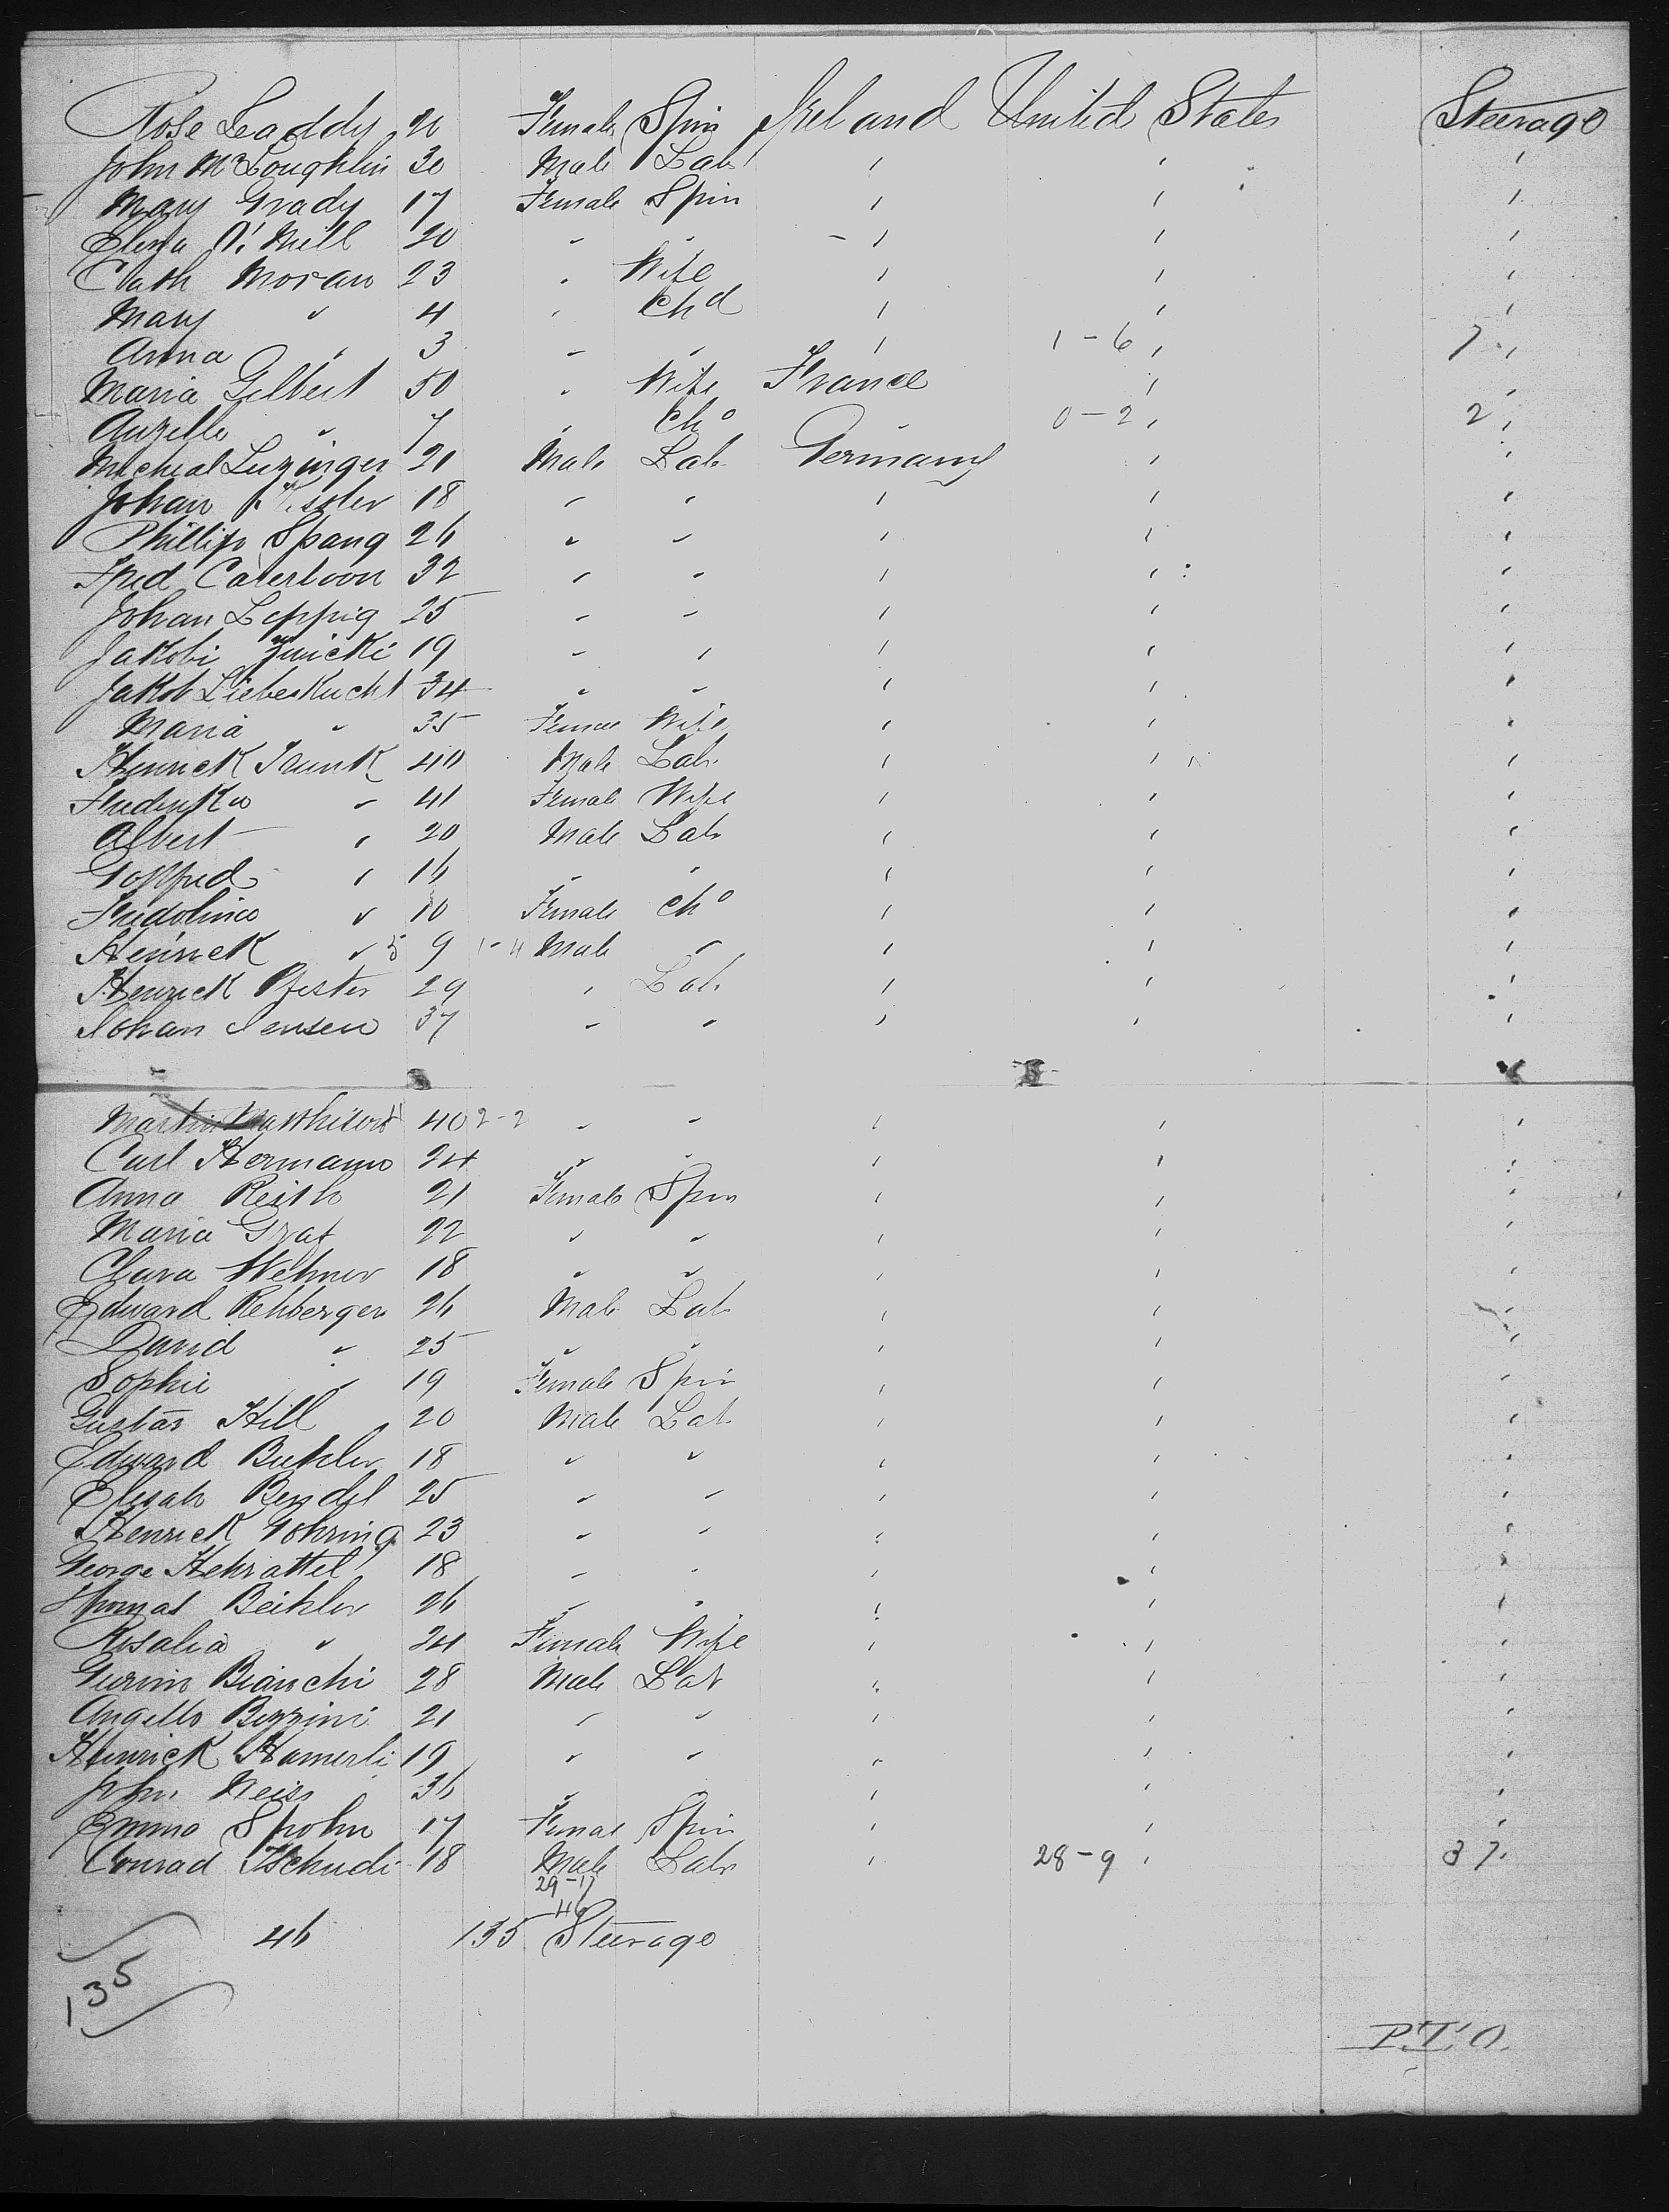 Rose Leaddy 20 Female Spin Ireland United States Steerage
John McLoughlin 30 Male Lab " " "
Mary Grady 17 Female Spin " " "
Eliza O'Neill 20 " " " " "
Cath Moran 23 " Wife " " "
Mary " 4 " Chd " " "
Anna " 3 " " " 1-6 " 7 "
Maria Gilbert 50 " Wife France " "
" 7 " Chd " 0-2 " 2 "
Micheal Luzinger 21 Male Lab Germany " "
Johan Kessler 18 " " " " "
Phillip Spang 26 " " " " "
Fred 32 " " " " "
Johan Leppig 25 " " " " "
Jakobi Zwicki 19 " " " " "
Jakob Liebeskucht 34 " " " " "
Maria " 35 Female Wife " " "
Henrick 40 Male Lab " " "
Frederika " 41 Female Wife " " "
Albert " 20 Male Lab " " "
Gottfried " 16 " " " " "
Fridolina " 10 Female Chd " " "
Henrick " 5 9 1-4 Male " " " "
Henrick Pfister 29 " Lab " " "
Johan Jensen 37 " " " " "
Martin 40 2-2 " " " " "
Carl Hermann 24 " " " " "
Anna Reith 21 Female Spin " " "
Maria Graf 22 " " " " "
Clara Wehner 18 " " " " "
Edward Rehberger 26 Male Lab " " "
David " 25 " " " " "
Sophie " 19 Female Spin " " "
Gustav Hill 20 Male Lab " " "
Edward Buhler 18 " " " " "
Bendel 25 " " " " "
Henrick Gohring 23 " " " " "
George 18 " " " " "
Thomas Beikler 26 " " " " "
Rosalia " 24 Female Wife " " "
Bianchi 28 Male Lab " " "
Angello Bezzini 21 " " " " "
Henrick Hamerli 19 " " " " "
John Weiss 36 " " " "
Emma Spohn 17 Female Spin " " "
Conrad Tschudi 18 Male Lab " 28-9 " 37 "
29-17
46
46 135 Steerage
135
P.T.O.